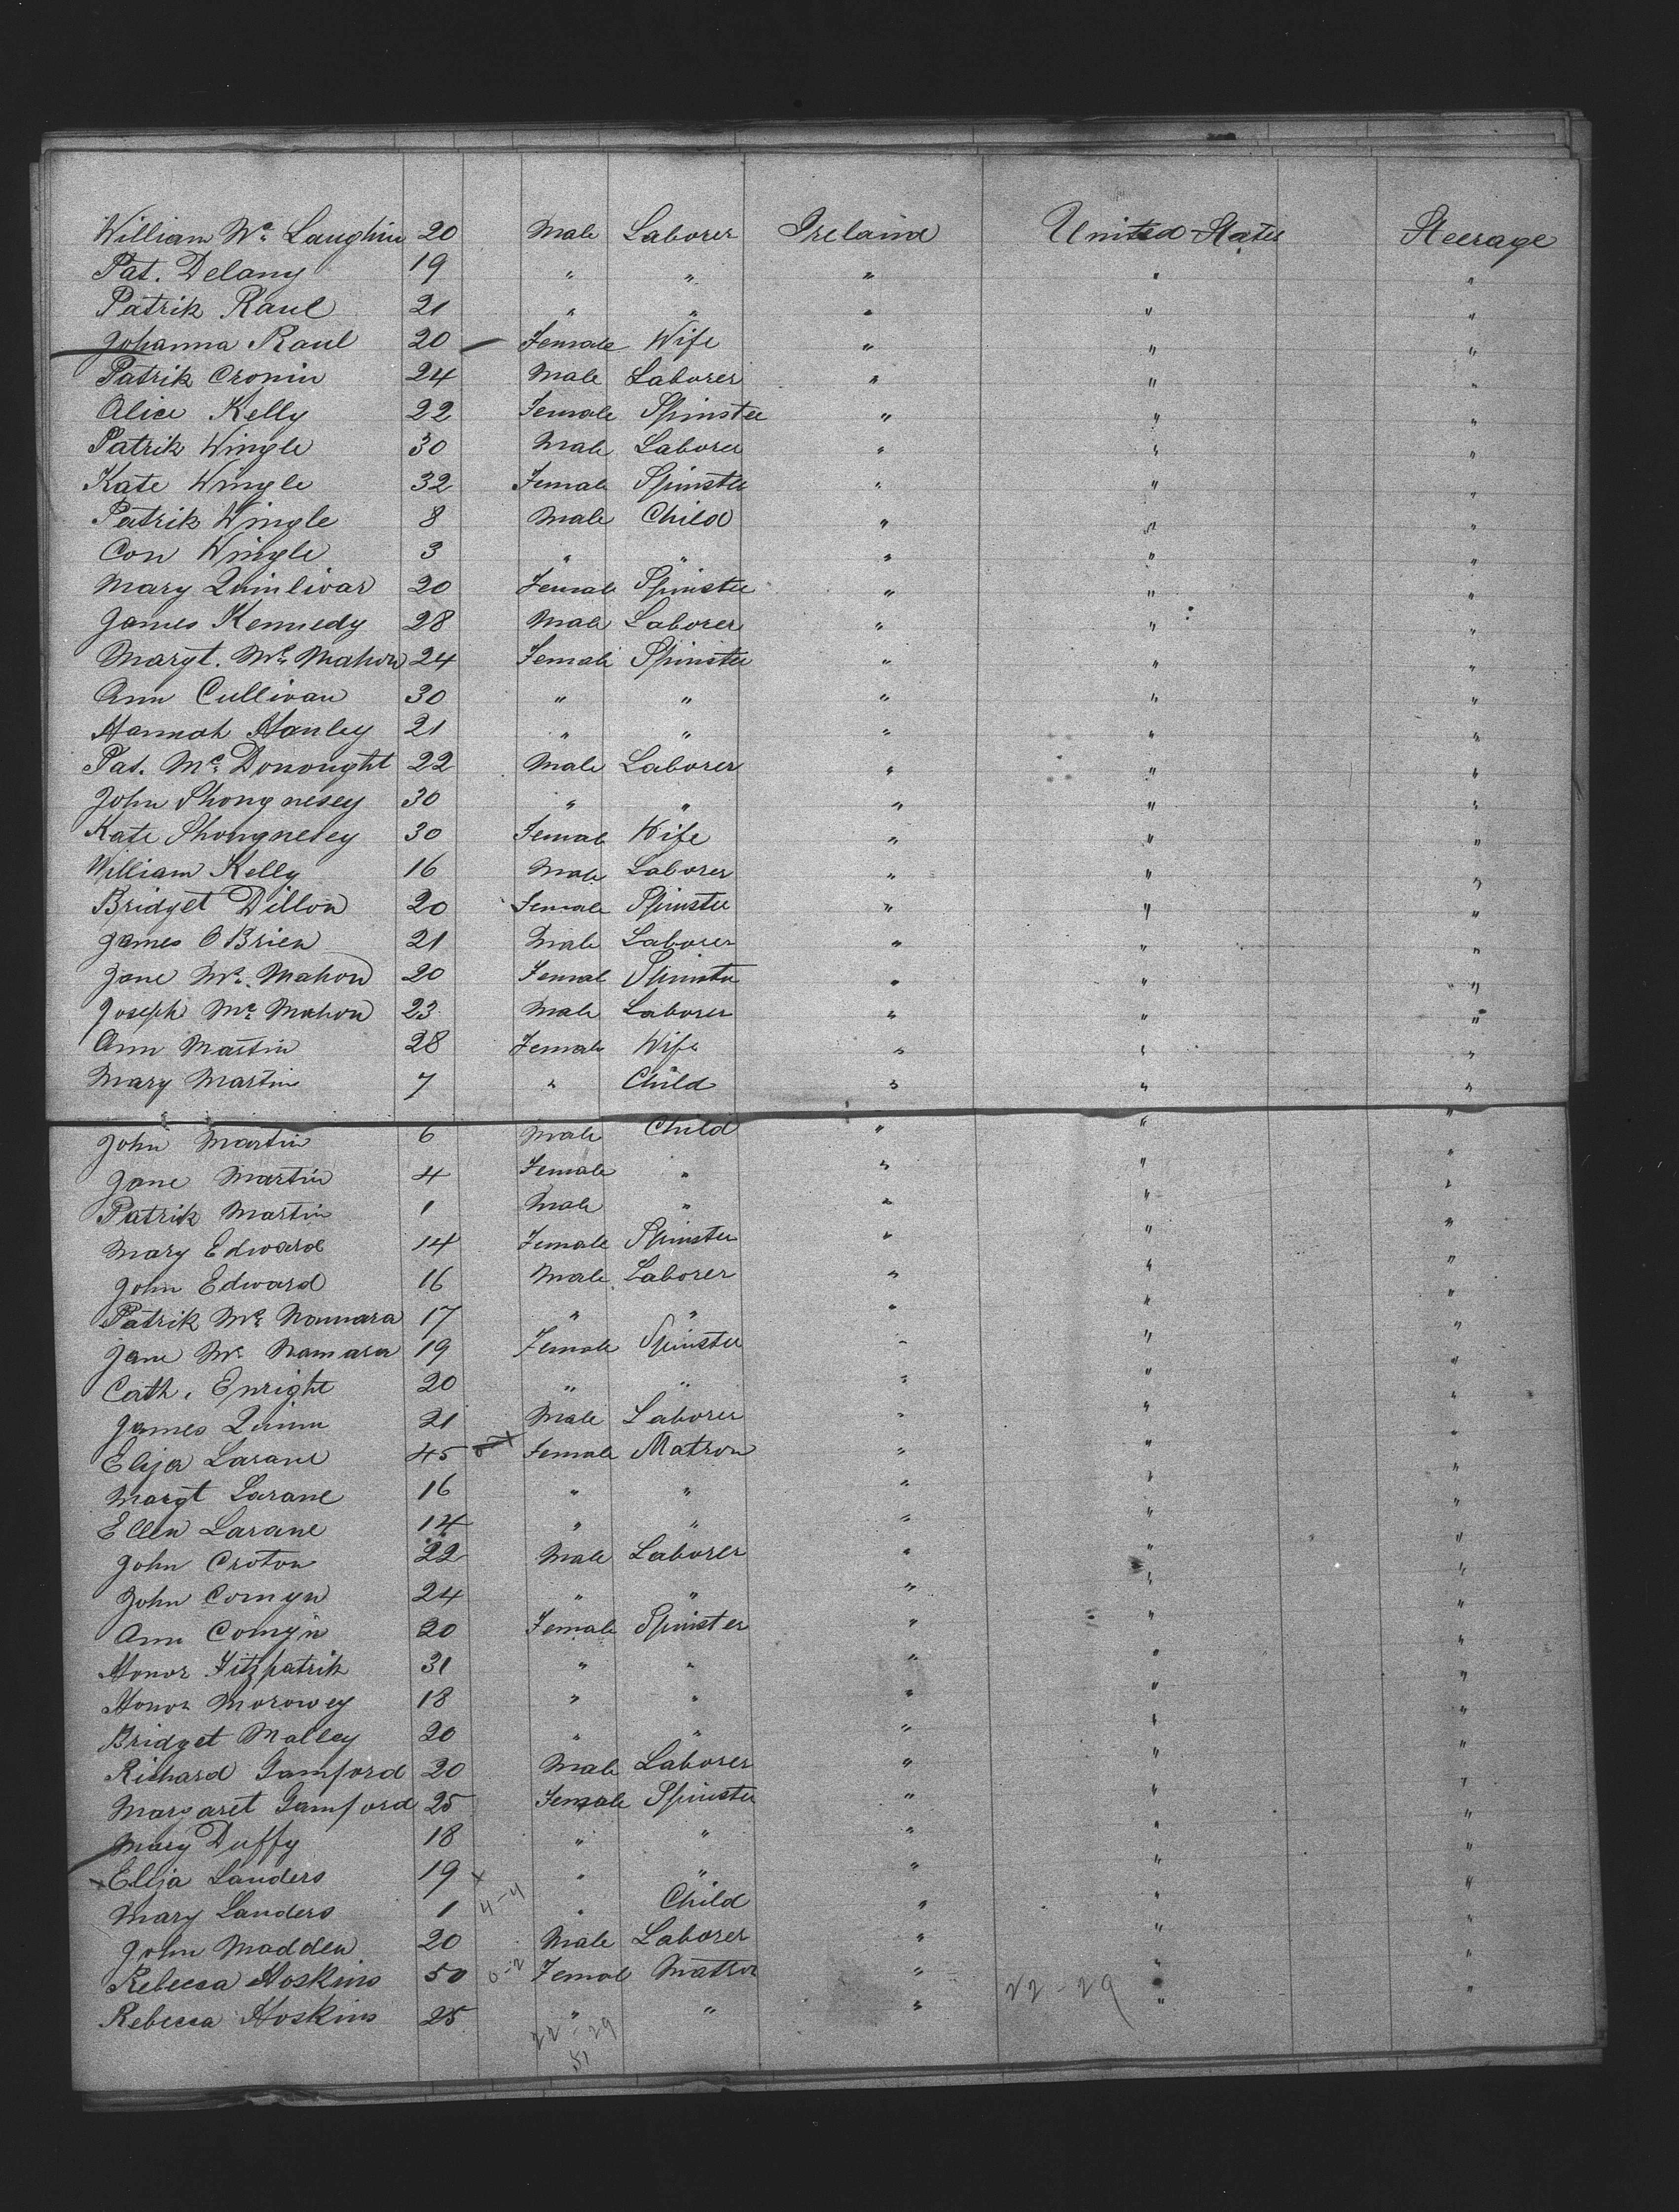 William Mc Laughin 20 Male Laborer Ireland United States Steerage
Pat. Delany 19 " " " " "
Patrik Raul 21 " " " " "
Johanna Raul 20 Female Wife " " "
Patrik Cronin 24 Male Laborer " " "
Alice Kelly 22 Female Spinster " " "
Patrik Wingle 30 Male Laborer " " "
Kate Wingle 32 Female Spinster " " "
Patrik Wingle 8 Male Child " " "
Con Wingle 3 " " " " "
Mary Quinlivar 20 Female Spinster " " "
James Kennedy 28 Male Laborer " " "
Margt. Mc Mahon 24 Female Spinster " " "
Ann Cullivan 30 " " " " "
Hannah Hanley 21 " " " " "
Pat. Mc Donought 22 Male Laborer " " "
John Shongnesey 30 " " " " "
Kate Shongnesey 30 Female Wife " " "
William Kelly 16 Male Laborer " " "
Bridget Dillon 20 Female Spinster " " "
James O Brien 21 Male Laborer " " "
Jane Mc Mahon 20 Female Spinster " " "
Joseph Mc Mahon 23 Male Laborer " " "
Ann Martin 28 Female Wife " " "
Mary Martin 7 " Child " " "
John Martin 6 Male Child " " "
Jane Martin 4 Female " " " "
Patrik Martin 1 Male " " " "
Mary Edward 14 Female Spinster " " "
John Edward 16 Male Laborer " " "
Patrik Mc Namara 17 " " " " "
Jane Mc Namara 19 Female Spinster " " "
Cath. Enright 20 " " " " "
James Quinn 21 Male Laborer " " "
Eliza Larane 45 Female Matron " " "
Margt Larane 16 " " " " "
Ellen Larane 14 " " " " "
John Croton 22 Male Laborer " " "
John Comyn 24 " " " " "
Ann Comyn 20 Female Spinster " " "
Honor Fitzpatrik 31 " " " " "
Honor Morowey 18 " " " " "
Bridget Malley 20 " " " " "
Richard Gamford 20 Male Laborer " " "
Margaret Gamford 25 Female Spinster " " "
Mary Duffy 18 " " " " "
x Eliza Landers 19 x " " " " "
Mary Landers 1 4-4 " Child " " "
John Madden 20 Male Laborer " " "
Rebecca Hoskins 50 0-2 Female Matron " " "
Rebecca Hoskins 25 " " " 22-29 " "
22-29
51